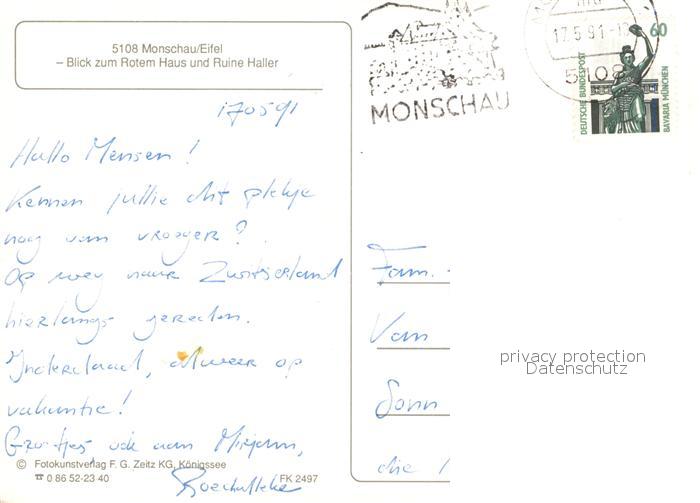 5108 Monschau/Eifel
– Blick zum Rotem Haus und Ruine Haller
MONSCHAU
17.5.91-18
5108
60
DEUTSCHE BUNDESPOST
BAVARIA MÜNCHEN
170591
Hallo Mensen!
Kennen jullie dit plekje
nog van vroeger?
Op weg naar Zwitserland
hierlangs gereden.
Inderdaad, alweer op
vakantie!
Groetjes, ook aan Mirjam,
Fam.
Van
Sonn
die
privacy protection
Datenschutz
© Fotokunstverlag F. G. Zeitz KG, Königssee
☎ 0 86 52-23 40
FK 2497